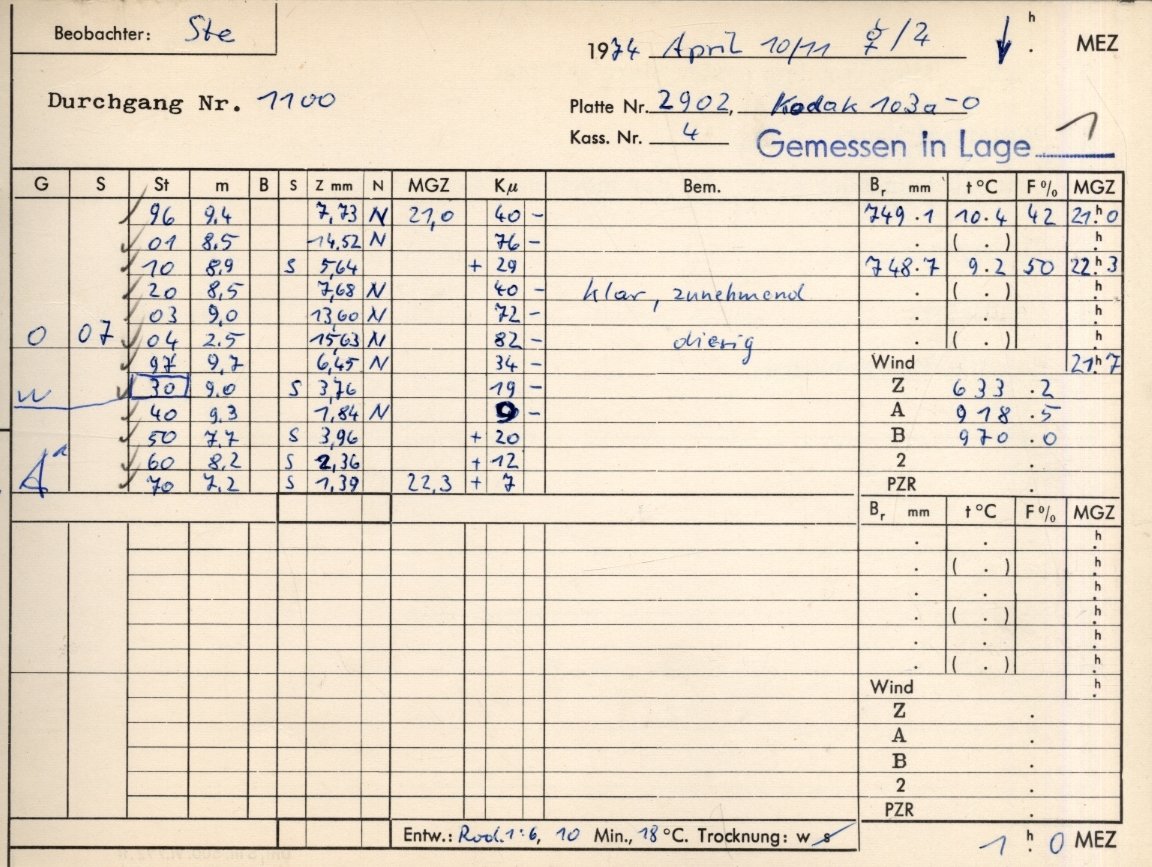 Beobachter: Ste
1974 April 10/11 ☿/♃ ↓ h . MEZ
Durchgang Nr. 1100
Platte Nr. 2902, Kodak 103a-O
Kass. Nr. 4
Gemessen in Lage 1
G S St m B S Z mm N MGZ Kμ Bem. Br mm t°C F% MGZ
96 9.4 7,73 N 21,0 40 - 749.1 10.4 42 21h0
01 8.5 14,52 N 76 - . ( . ) h
10 8.9 S 5,64 + 29 748.7 9.2 50 22h3
20 8,5 7,68 N 40 - klar, zunehmend . ( . ) h
03 9,0 13,60 N 72 - . . h
0 07 04 2.5 15,63 N 82 - diesig . ( . ) h
97 9,7 6,45 N 34 - Wind 21h7
w 30 9.0 S 3,76 19 - Z 633.2
40 9.3 1,84 N 9 - A 918.5
50 7.7 S 3,96 + 20 B 970.0
60 8.2 S 2,36 + 12 2 .
70 7.2 S 1,39 22,3 + 7 PZR .
Br mm t°C F% MGZ
. . h
. ( . ) h
. . h
. ( . ) h
. . h
. ( . ) h
Wind h
Z .
A .
B .
2 .
PZR .
Entw.: Rod. 1:6, 10 Min., 18 °C. Trocknung: w s
1 h. 0 MEZ